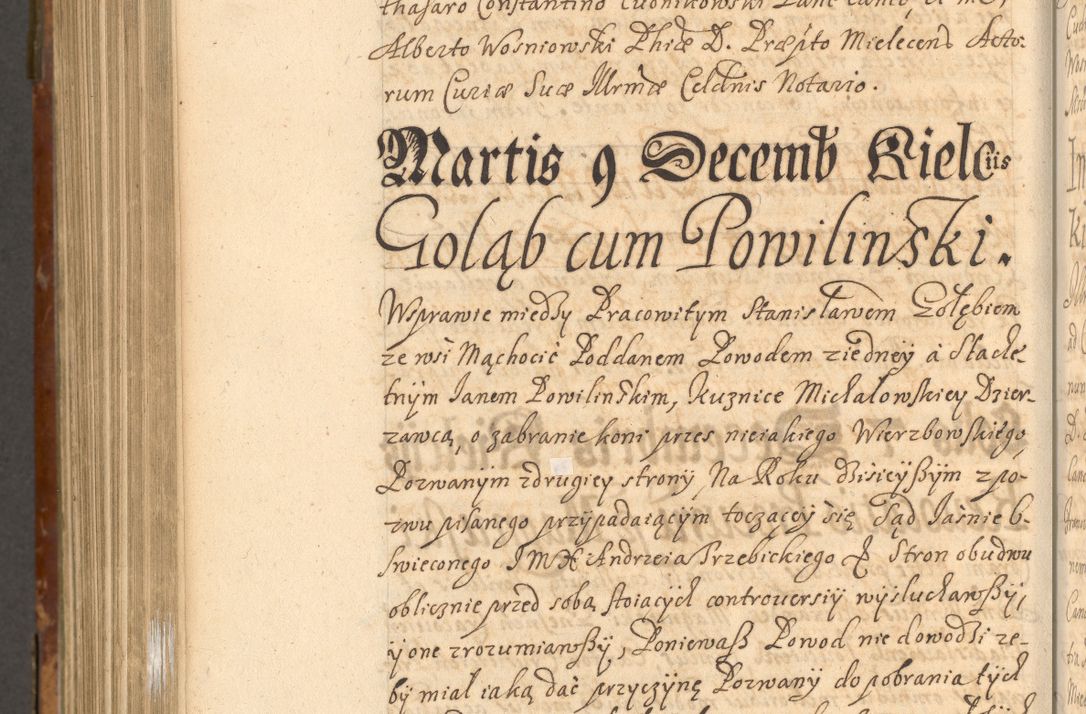 thasaro Constantino
Alberto Wosniowski Phiæ D. Præpto Mielecens Acto-
rum Curiæ Suæ Illrmæ Celsdnis Notario.
Martis 9 Decemb Kielciis
Gołąb cum Powilinski.
Wsprawie miedzy Pracowitym Stanisławem Gołębiem
ze wsi Mąchocic Poddanem Powodem ziedney á Slache-
tnym Janem Powilinskim, Kuznice Michałowskiey Dzier-
zawcą, o zabranie koni przes nieiakiego Wierzbowskiego
Pozwanym zdrugiey strony, Na Roku dzisieyßym z po-
zwu pisanego przypadaiącym toczącey się Sąd Jásnie b-
swieconego JMX Andrzeia Trzebickiego & Stron obudwu
oblicznie przed sobą stoiących controuersiy wysłuchawßy,
y one zrozumiawßy, Poniewaß Powod nie dowodzi ze-
by miał iaką dać przyczynę Pozwany do pobrania tych